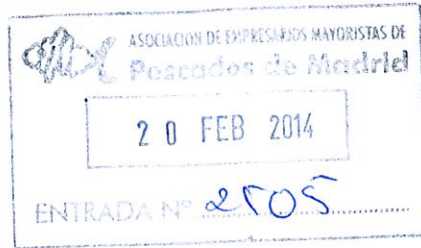 ASOCIACION DE EMPRESARIOS MAYORISTAS DE
Pescados de Madrid
20 FEB 2014
ENTRADA Nº 2505